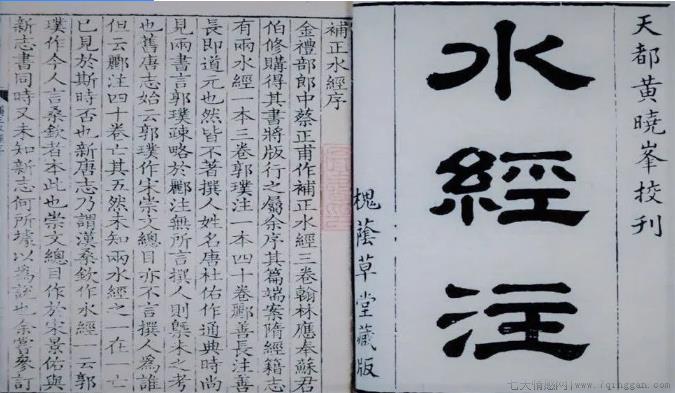 天都黄曉峯挍刊
水經注
槐蔭草堂藏版
補正水經序
金禮部郎中蔡正甫作補正水經三卷翰林應奉蘇君
伯修購得其書將版行之屬余序其篇端案隋經籍志
有兩水經一本三卷郭璞注一本四十卷酈善長注善
長即道元也然皆不著撰人姓名唐杜佑作通典時尚
見兩書言郭璞疎略於酈注無所言撰人則槩未之考
也舊唐志始云郭璞作宋崇文總目亦不言撰人為誰
但云酈注四十卷亡其五然未知兩水經之一在一亡
已見於斯時否也新唐志乃謂漢桑欽作水經一云郭
璞作今人言桑欽者本此也崇文總目作於宋景佑與
新志書同時又未知新志何所據以為說也余嘗參訂
七大情感网 | www.7qinggan.com